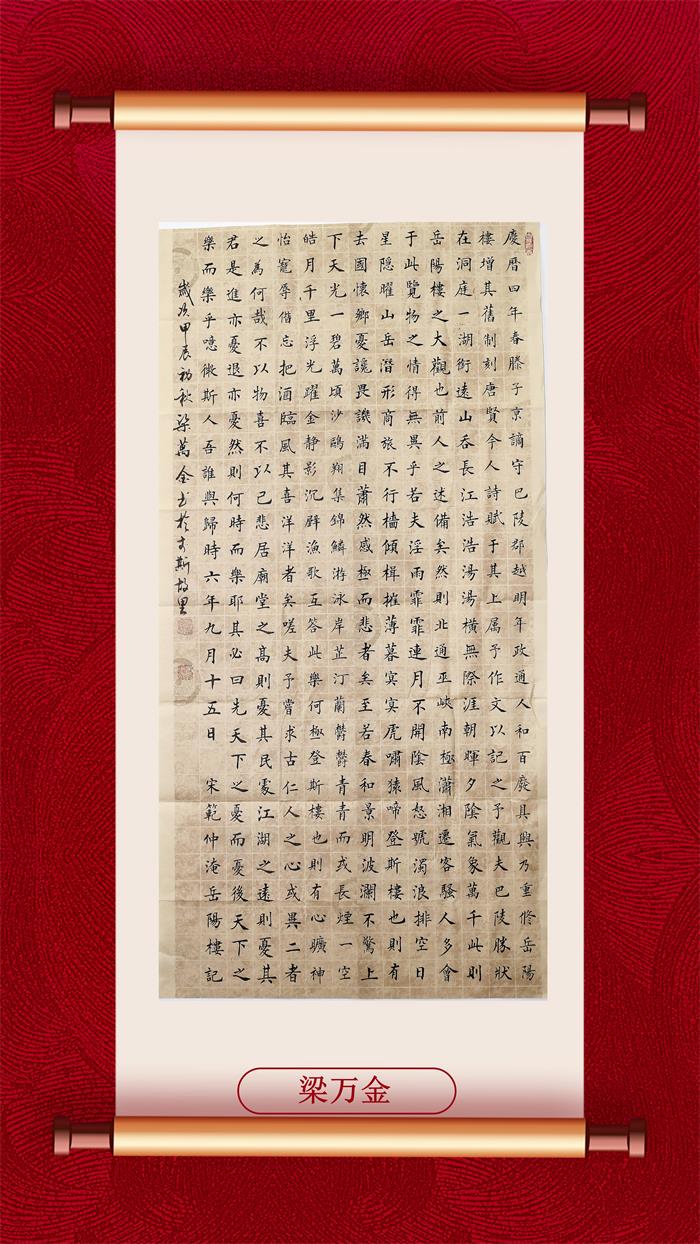 慶曆四年春滕子京謫守巴陵郡越明年政通人和百廢具興乃重修岳陽
樓增其舊制刻唐賢今人詩賦于其上属予作文以記之予觀夫巴陵勝狀
在洞庭一湖銜遠山吞長江浩浩湯湯橫無際涯朝暉夕陰氣象萬千此則
岳陽樓之大觀也前人之述備矣然則北通巫峽南極瀟湘遷客騷人多會
于此覽物之情得無異乎若夫淫雨霏霏連月不開陰風怒號濁浪排空日
星隱曜山岳潛形商旅不行檣傾楫摧薄暮冥冥虎嘯猿啼登斯樓也則有
去國懷鄉憂讒畏譏滿目蕭然感極而悲者矣至若春和景明波瀾不驚上
下天光一碧萬頃沙鷗翔集錦鱗游泳岸芷汀蘭鬱鬱青青而或長煙一空
皓月千里浮光躍金静影沉璧漁歌互答此樂何極登斯樓也則有心曠神
怡寵辱偕忘把酒臨風其喜洋洋者矣嗟夫予嘗求古仁人之心或異二者
之為何哉不以物喜不以己悲居廟堂之高則憂其民處江湖之遠則憂其
君是進亦憂退亦憂然則何時而樂耶其必曰先天下之憂而憂後天下之
樂而樂乎噫微斯人吾誰與歸時六年九月十五日 宋範仲淹岳陽樓記
歲次甲辰初秋梁萬金書於李斯故里
梁万金